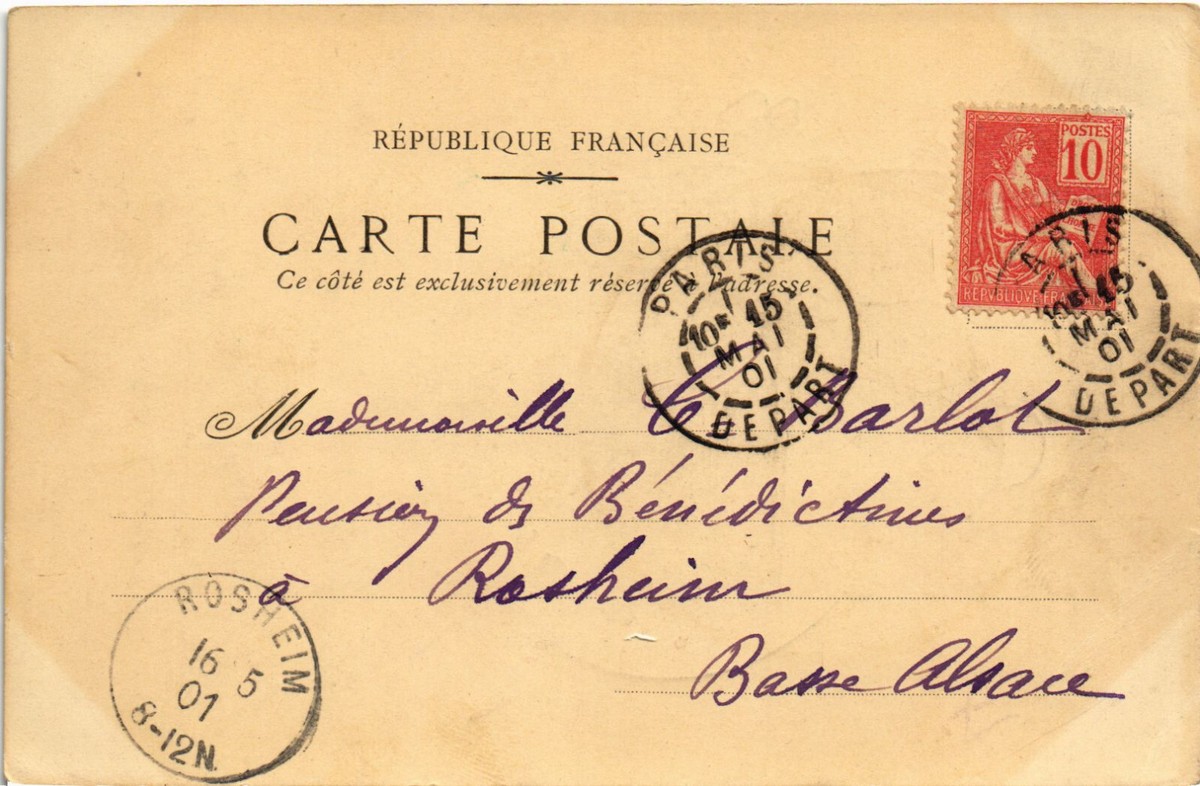 RÉPUBLIQUE FRANÇAISE
CARTE POSTALE
Ce côté est exclusivement réservé à l'adresse.
POSTES
10
RÉPUBLIQUE FRANÇAISE
PARIS
10E 15
MAI
01
DEPART
PARIS
10E 15
MAI
01
DEPART
Mademoiselle C Barlot
Pension des Bénédictines
à Rosheim
Basse Alsace
ROSHEIM
16 5
01
8-12N.